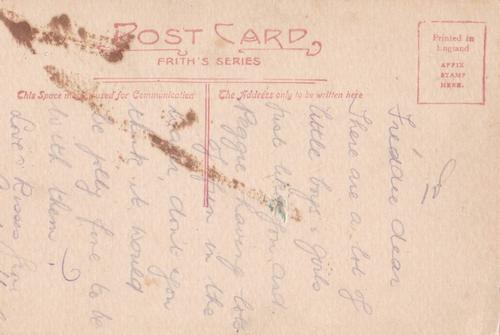 POST CARD
FRITH'S SERIES
Printed in
England
AFFIX
STAMP
HERE.
This Space may be used for Communication
The Address only to be written here
Freddie dear
There are a lot of
little boys & girls
just like you and
Peggie having lots
of fun in the
don't you
think it would
be jolly fine to be
with them?
Love & Kisses from